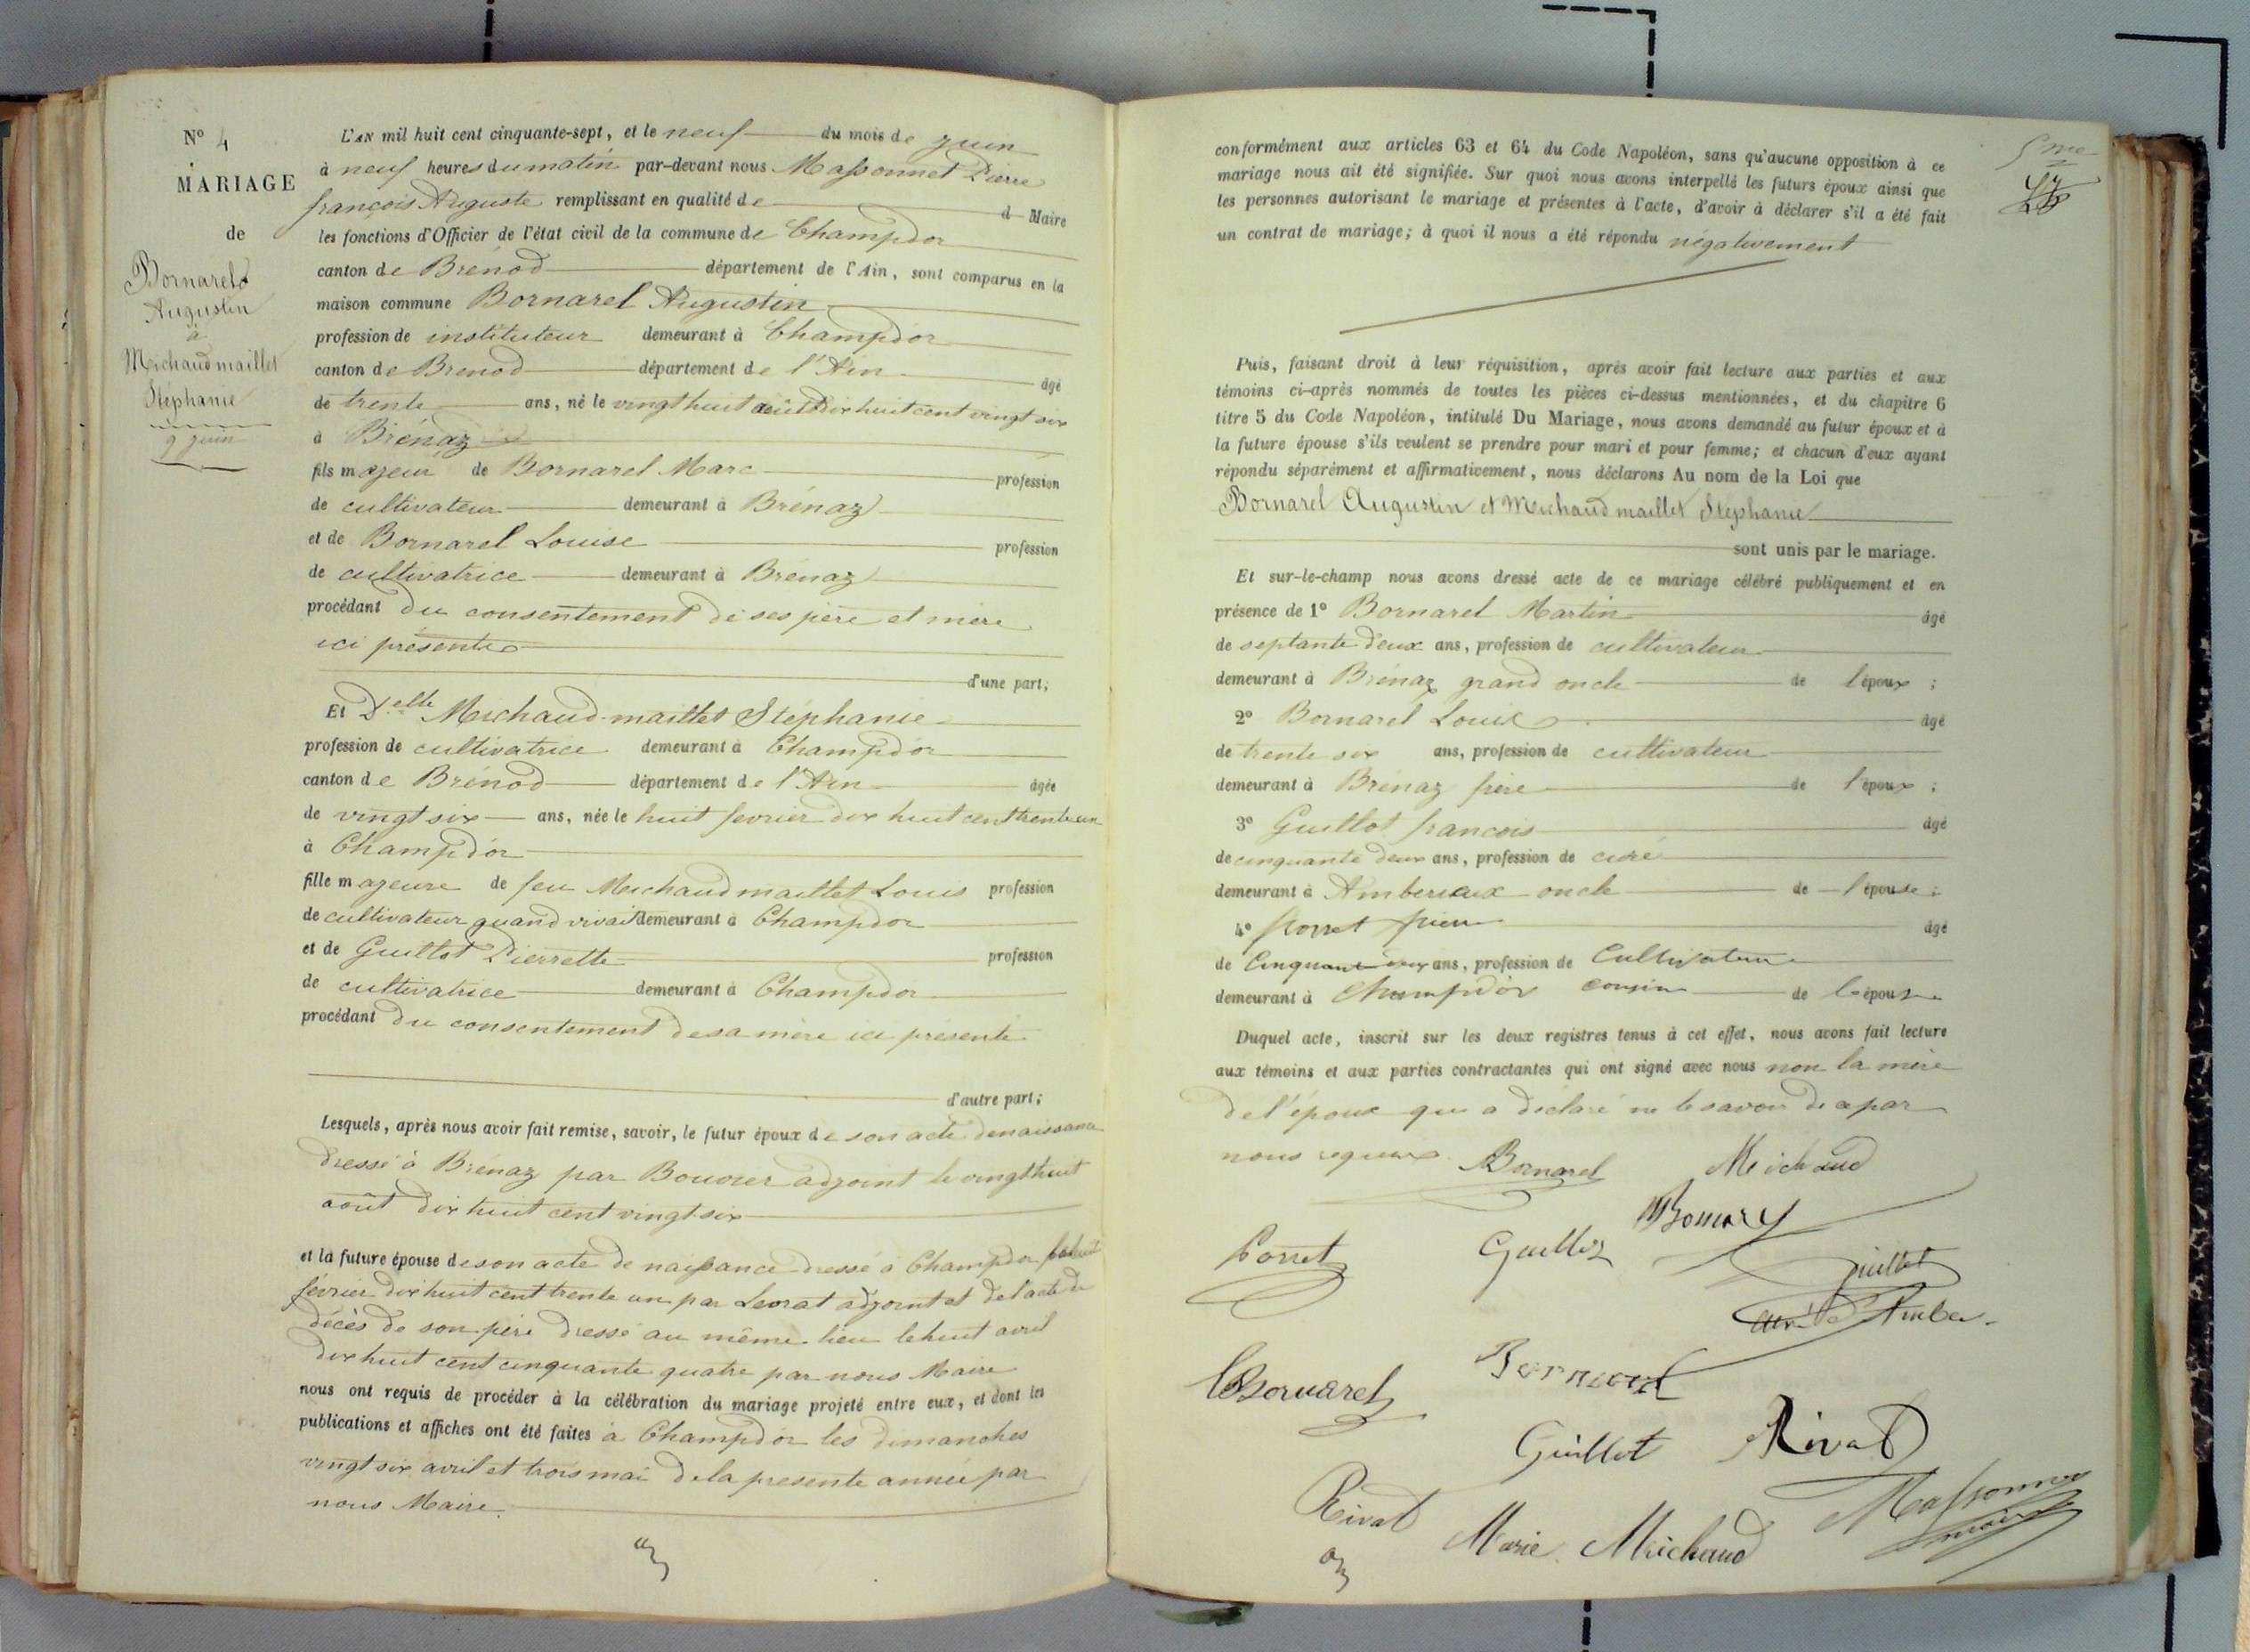 N° 4
MARIAGE
de
Bornarel
Augustin
à
Michaudmaillet
Stéphanie
9 juin
L'AN mil huit cent cinquante-sept, et le neuf du mois de juin
à neuf heures du matin par-devant nous Massonnet Pierre
françois Auguste remplissant en qualité de d Maire
les fonctions d'Officier de l'état civil de la commune de Champdor
canton de Brénod département de l'Ain, sont comparus en la
maison commune Bornarel Augustin
profession de instituteur demeurant à Champdor
canton de Brenod département de l'Ain âgé
de trente ans, né le vingt huit août dix huit cent vingt six
à Brénaz
fils majeur de Bornarel Marc profession
de cultivateur demeurant à Brénaz
et de Bornarel Louise profession
de cultivatrice demeurant à Brénaz
procédant du consentement de ses père et mère
ici présents
d'une part;
Et Delle Michaud-maillet Stéphanie
profession de cultivatrice demeurant à Champdor
canton de Brénod département de l'Ain âgée
de vingt six ans, née le huit fevrier dix huit cent trente un
à Champdor
fille majeure de feu Michaudmaillet Louis profession
de cultivateur quand vivait demeurant à Champdor
et de Guillot Pierrette profession
de cultivatrice demeurant à Champdor
procédant du consentement de sa mère ici présente
d'autre part;
Lesquels, après nous avoir fait remise, savoir, le futur époux de son acte de naissance
dressé à Brénaz par Bouvier adjoint le vingt huit
août dix huit cent vingt-six
et la future épouse de son acte de naissance dressé à Champdor le huit
février dix huit cent trente un par Levrat adjoint et de l'acte de
décès de son père dressé au même lieu le huit avril
dix huit cent cinquante quatre par nous Maire
nous ont requis de procéder à la célébration du mariage projeté entre eux, et dont les
publications et affiches ont été faites à Champdor les dimanches
vingt six avril et trois mai de la presente année par
nous Maire.
5me
conformément aux articles 63 et 64 du Code Napoléon, sans qu'aucune opposition à ce
mariage nous ait été signifiée. Sur quoi nous avons interpellé les futurs époux ainsi que
les personnes autorisant le mariage et présentes à l'acte, d'avoir à déclarer s'il a été fait
un contrat de mariage; à quoi il nous a été répondu négativement
Puis, faisant droit à leur réquisition, après avoir fait lecture aux parties et aux
témoins ci-après nommés de toutes les pièces ci-dessus mentionnées, et du chapitre 6
titre 5 du Code Napoléon, intitulé Du Mariage, nous avons demandé au futur époux et à
la future épouse s'ils veulent se prendre pour mari et pour femme; et chacun d'eux ayant
répondu séparément et affirmativement, nous déclarons Au nom de la Loi que
Bornarel Augustin et Michaud maillet Stéphanie
sont unis par le mariage.
Et sur-le-champ nous avons dressé acte de ce mariage célébré publiquement et en
présence de 1° Bornarel Martin âgé
de septante deux ans, profession de cultivateur
demeurant à Brénaz grand oncle de l'époux ;
2° Bornarel Louis âgé
de trente six ans, profession de cultivateur
demeurant à Brénaz frère de l'époux ;
3° Guillot francois âgé
de cinquante deux ans, profession de curé
demeurant à Ambérieux oncle de l'épouse ;
4° Porret âgé
de Cinquante ans, profession de Cultivateur
demeurant à Champdor cousin de l'épouse
Duquel acte, inscrit sur les deux registres tenus à cet effet, nous avons fait lecture
aux témoins et aux parties contractantes qui ont signé avec nous non la mère
de l'époux qui a déclaré ne le savoir de ce par
nous requise. Bornarel Michaud
Porret Guillot
Guillot
Bornarel
Bornarel
Guillot Rivat
Rivat Marie Michaud Massonnet
maire